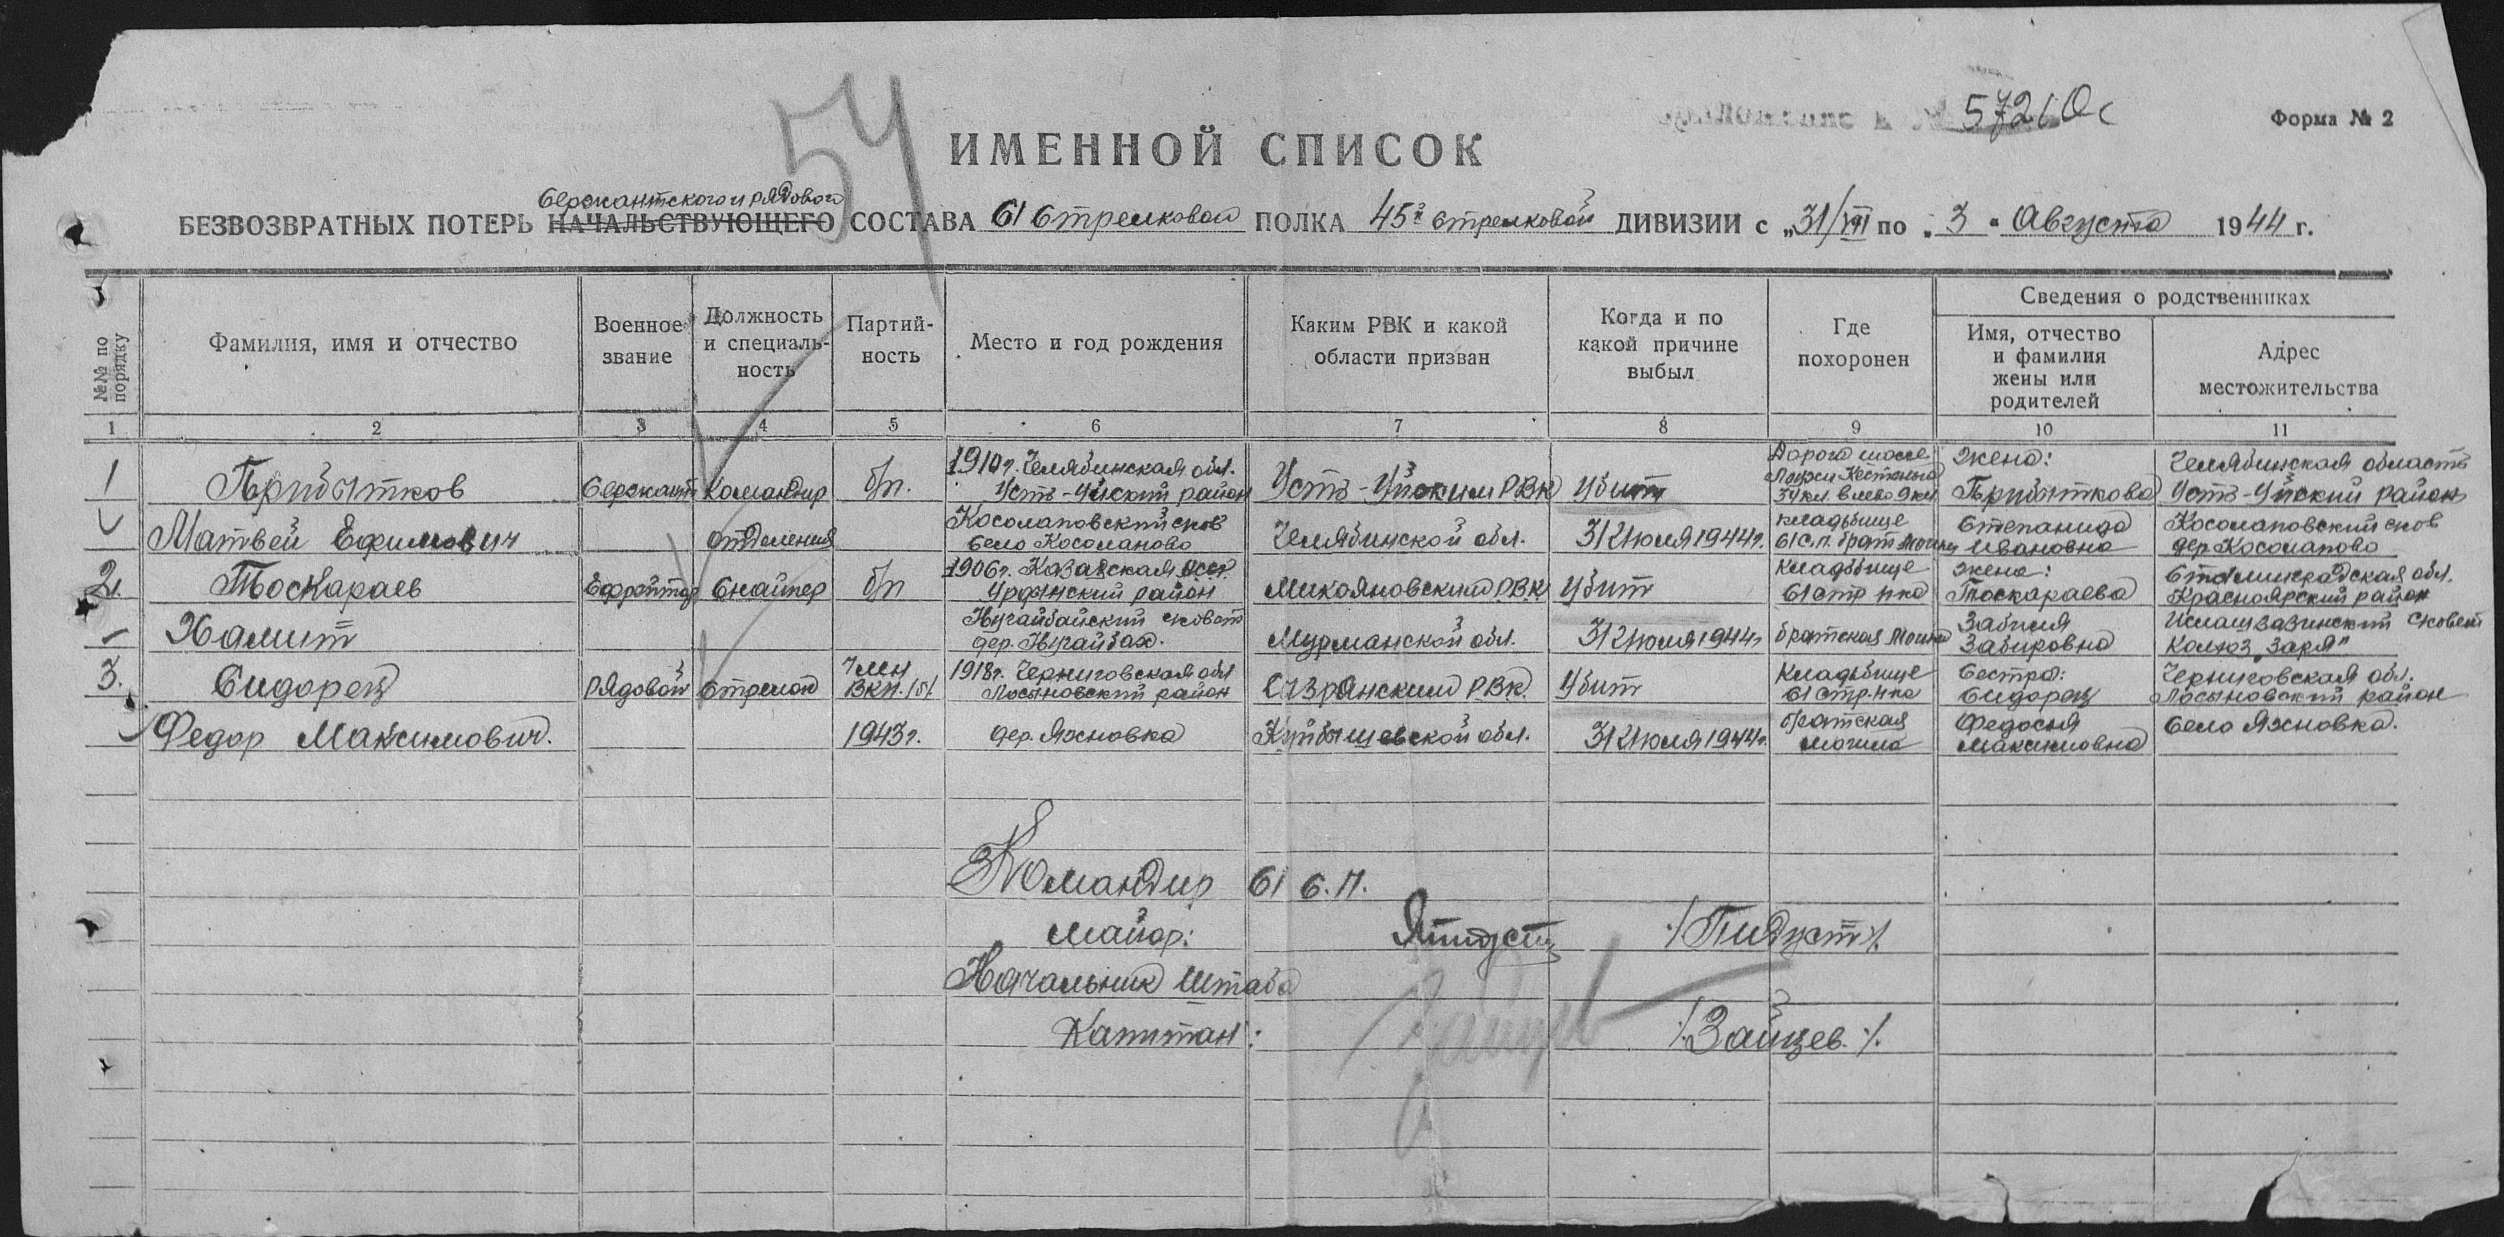 54
57210с
Форма № 2
ИМЕННОЙ СПИСОК
Сержантского и рядового
БЕЗВОЗВРАТНЫХ ПОТЕРЬ НАЧАЛЬСТВУЮЩЕГО СОСТАВА 61 Стрелковой ПОЛКА 45й стрелковой ДИВИЗИИ с „31/VII по „3“ Августа 1944 г.
№№ по порядку
Фамилия, имя и отчество
Военное звание
Должность и специаль-ность
Партий-ность
Место и год рождения
Каким РВК и какой области призван
Когда и по какой причине выбыл
Где похоронен
Сведения о родственниках
Имя, отчество и фамилия жены или родителей
Адрес местожительства
1 2 3 4 5 6 7 8 9 10 11
1
Прибытков
Матвей Ефимович
Сержант
Командир
отделения
б/п.
1910г. Челябинская обл.
Усть-Уйский район
Косолаповский сков
село Косолапово
Усть-Уйским РВК
Челябинской обл.
Убит
31 Июля 1944г.
Дорога шоссе
Лоухи Кестеньга
34 кл. влево 9км
кладбище
61 с.п. брат могила
жена:
Прибыткова
Степанида
Ивановна
Челябинская область
Усть-Уйский район
Косолаповский сков
дер. Косолапово
2.
Тоскараев
Хамит
Ефрейтор
Снайпер
б/п
1906г. Казанская
район
Нугайбайский сковет
дер. Нугайбах.
Микояновским РВК
Мурманской обл.
Убит
31 Июля 1944г
Кладбище
61 стр пка
братская могила
жена:
Тоскараева
Забиля
Забировна
Сталинградская обл.
Красноярский район
сковет
Колхоз „Заря"
3.
Сидорец
Федор Максимович.
Рядовой
Стрелок
Член
ВКП./б/
1943г.
1918г. Черниговская обл
Лосиновский район
дер. Яхновка
Сызранским РВК.
Куйбышевской обл.
Убит
31 Июля 1944г.
Кладбище
61 стр. пка
братская
могила
Сестра:
Сидорец
Федосия
Максимовна
Черниговская обл.
Лосыновский район
село Яхновка.
Командир 61 с.п.
майор: /Пидуст/.
Начальник Штаба
Капитан: Зайцев /Зайцев./.